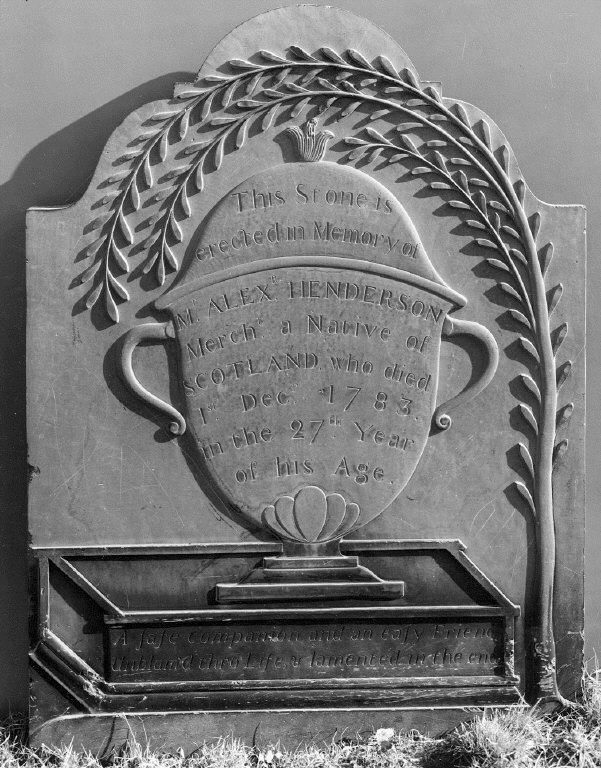 This Stone is
erected in Memory of
Mr. ALEXr. HENDERSON
Merch.t a Native of
SCOTLAND who died
1st Decr. 1783.
in the 27th Year
of his Age.
A ſafe Companion and an eaſy Friend
Unblam'd thro Life, & lamented in the end